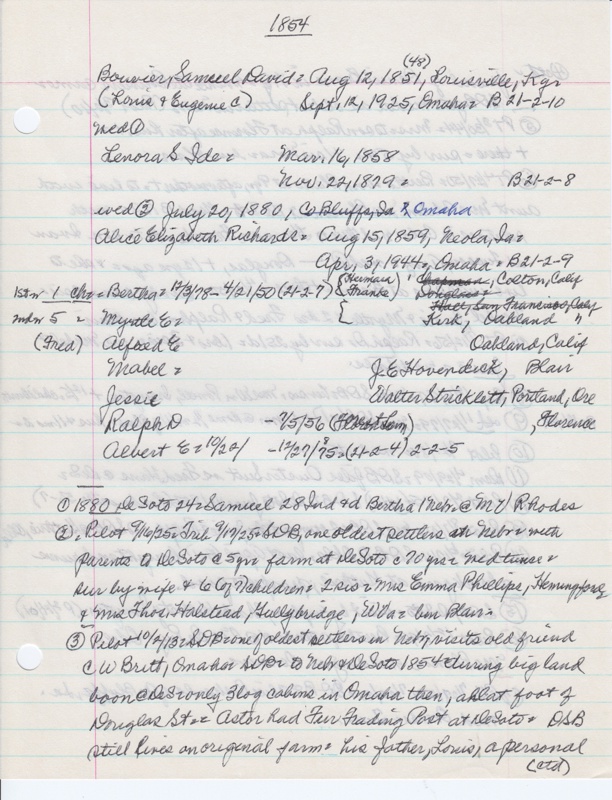 1854
(48)
Bouvier, Samuel David = Aug 12, 1851, Louisville, Ky =
(Louis & Eugenie C) Sept, 12, 1925, Omaha = B 21-2-10
med ①
Lenora S. Ide = Mar. 16, 1858
Nov. 22, 1879 = B 21-2-8
wed ② July 20, 1880, Co Bluffs, Ia & Omaha
Alice Elizabeth Richards = Aug 15, 1859, Neola, Ia =
Apr, 3, 1944 = Omaha = B 21-2-9
1st w 1 ch = Bertha = 12/3/78 - 4/21/50 (21-2-7) {Herman Franke} Chapman, Colton, Calif
Douglas
Hall, San Francisco, Calif
2nd w 5 = Myrtle E = { Kirk, Oakland "
(Fred) Alfred E Oakland, Calif
Mabel = J. E. Hovendick, Blair
Jessie Walter Stricklett, Portland, Ore
Ralph D - 7/5/56 , Florence
Albert E = 10/22/ - 12/27/78 = (21-2-4) 2-2-5
① 1880, DeSoto 24 = Samuel 28 Ind & d Bertha 1 Nebr @ M V Rhodes
②. Pilot 9/16/25 = Trib 9/17/25 = SDB, one oldest settlers in Nebr = with
parents to DeSoto @ 5 yr = farm at DeSoto @ 70 yrs = wed twice =
sur by wife & 6 of 7 children = 2 sis = Mrs Emma Phillips, Hemingford,
& Mrs Thos. Halstead, Gulleybridge, W Va = bur Blair =
③ Pilot 10/2/13 = SDB one of oldest settlers in Nebr, visits old friend
C W Britt, Omaha = SDB to Nebr & DeSoto 1854 = during big land
boom @ DeS = only 3 log cabins in Omaha then, all at foot of
Douglas St = Astor had Fur Trading Post at DeSoto = DSB
still lives on original farm = his father, Louis, a personal
(ctd)